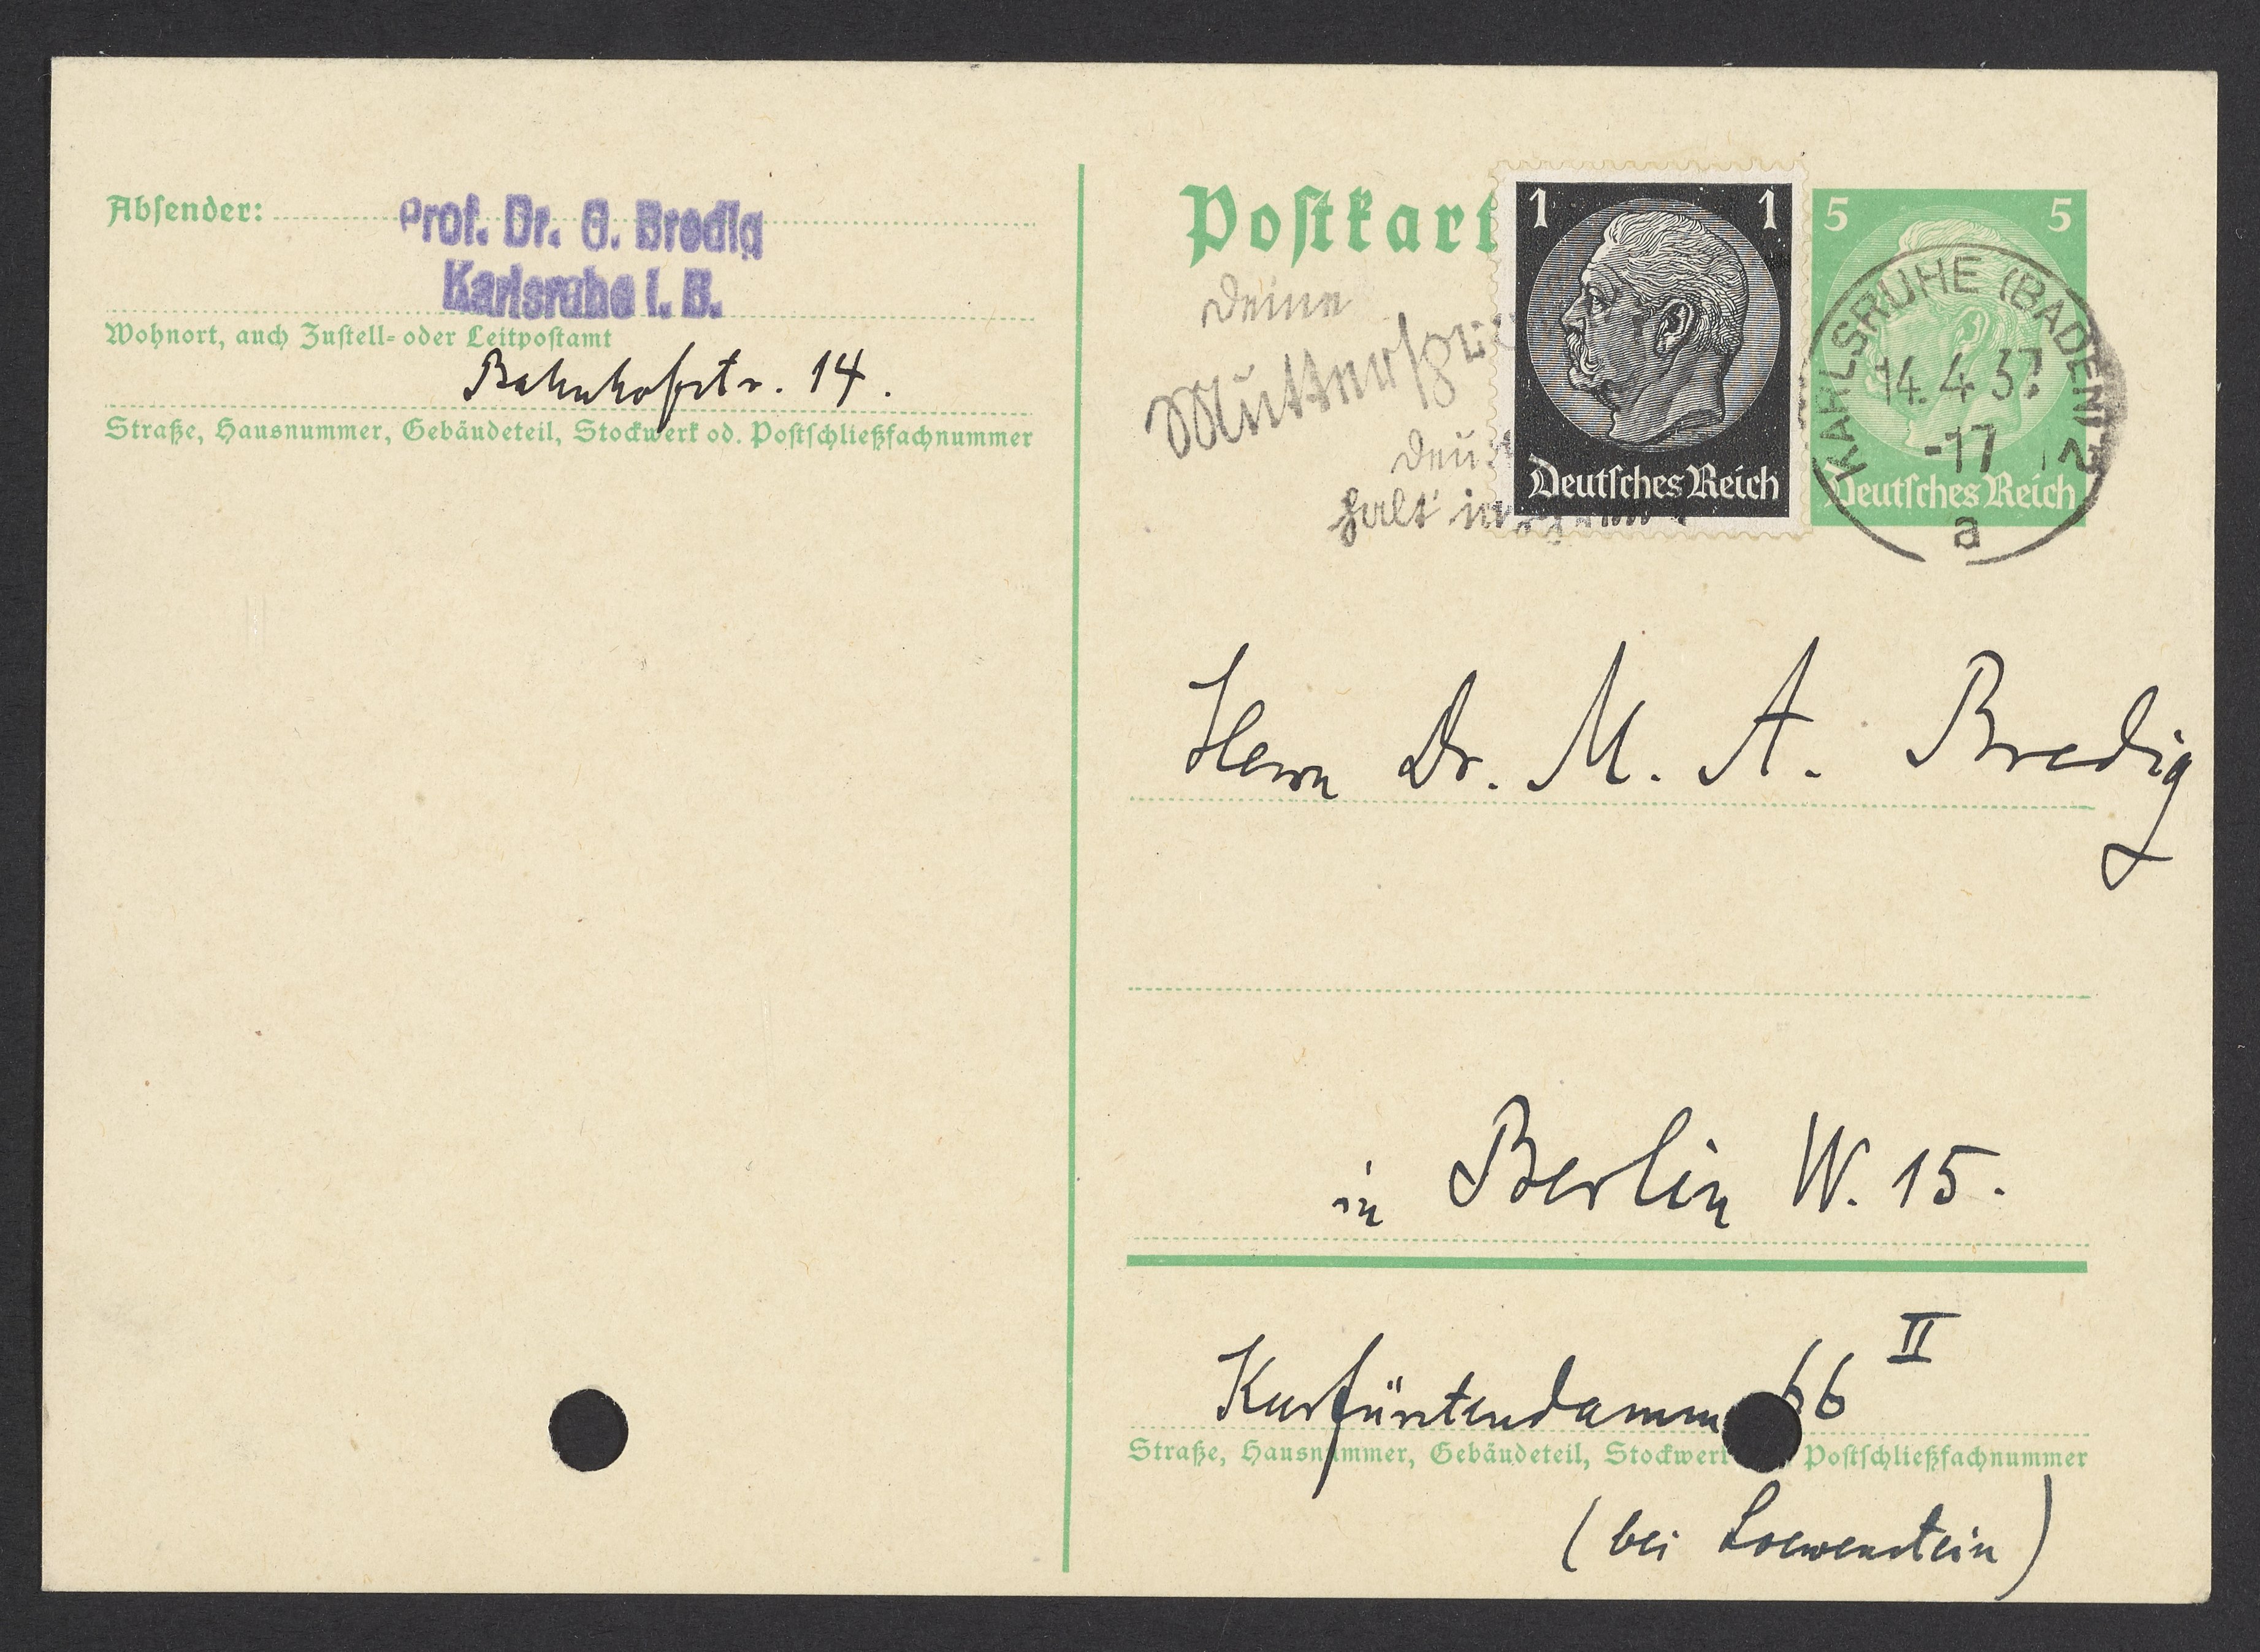 Absender:
Prof. Dr. G. Bredig
Karlsruhe i. B.
Wohnort, auch Zustell- oder Leitpostamt
Bahnhofstr. 14.
Straße, Hausnummer, Gebäudeteil, Stockwerk od. Postschließfachnummer
Postkart
1 1
Deutsches Reich
5 5
Deutsches Reich
KARLSRUHE (BADEN) 2
14.4.37
-17
a
Deine
halt
Herrn Dr. M. A. Bredig
in Berlin W. 15.
Kurfürstendamm 66 II
Straße, Hausnummer, Gebäudeteil, Stockwerk Postschließfachnummer
(bei Loewenstein)